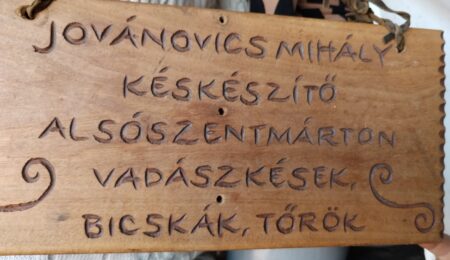 JOVÁNOVICS MIHÁLY
KÉSKÉSZÍTŐ
ALSÓSZENTMÁRTON
VADÁSZKÉSEK,
BICSKÁK, TŐRÖK